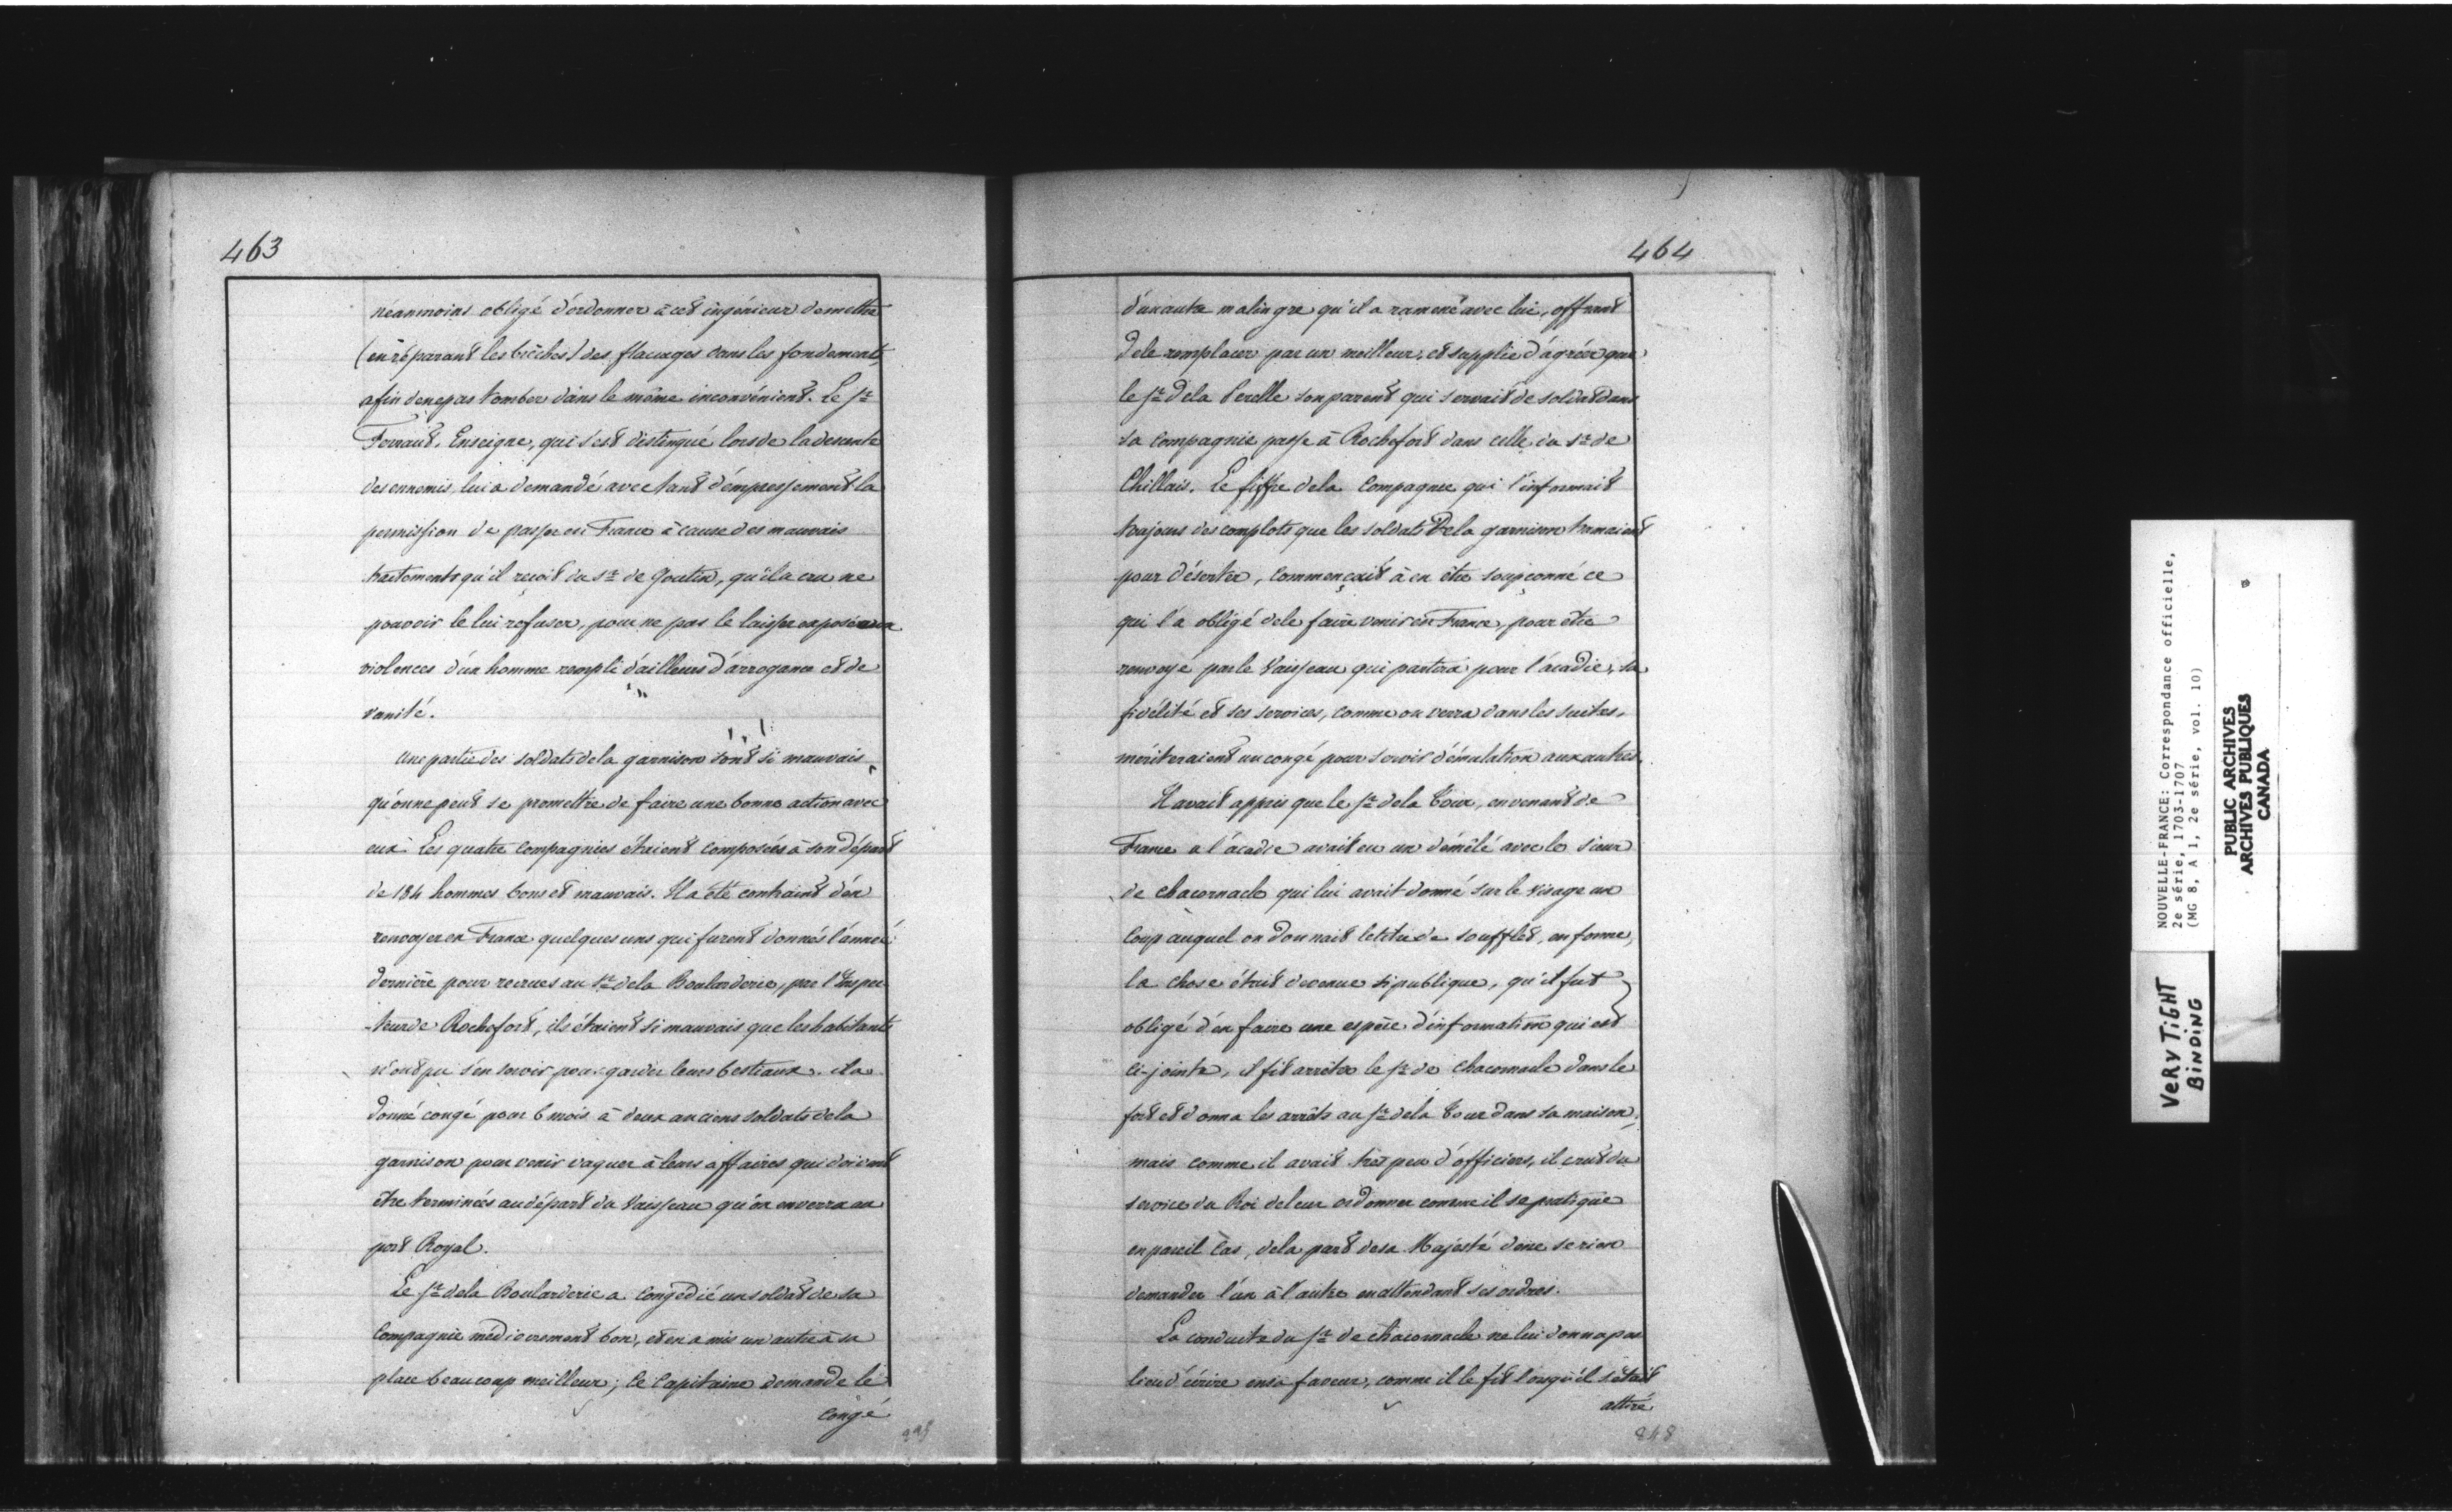 463
néanmoins obligé d'ordonner à cet ingénieur de mettre
(en réparant les brèches) des flacages dans les fondements,
afin de ne pas tomber dans le même inconvénient. Le Sr
Ferraut, Enseigne, qui s'est distingué lors de la descente
des ennemis, lui a demandé avec tant d'empressement la
permission de passer en France à cause des mauvais
traitements qu'il reçoit du Sr de Goutin, qu'il a cru ne
pouvoir le lui refuser, pour ne pas le laisser exposé aux
violences d'un homme rempli d'ailleurs d'arrogance et de
vanité.
Une partie des soldats de la garnison sont si mauvais
qu'on ne peut se promettre de faire une bonne action avec
eux. Les quatre compagnies étaient composées à son départ
de 184 hommes bons et mauvais. Il a été contraint d'en
renvoyer en France quelques uns qui furent donnés l'année
dernière pour recrues au Sr de la Boularderie, par l'Inspec
-teur de Rochefort, ils étaient si mauvais que les habitants
n'ont pu s'en servir pour garder leurs bestiaux. il a
donné congé pour 6 mois à deux anciens soldats de la
garnison pour venir vaquer à leurs affaires qui doivent
être terminées au départ du Vaisseau qu'on enverra au
port Royal.
Le Sr de la Boularderie a congédié un soldat de sa
Compagnie médiocrement bon, et en a mis un autre à sa
place beaucoup meilleur; ce Capitaine demande le
congé
464
d'un autre malingre qu'il a ramené avec lui, offrant
de le remplacer par un meilleur, et supplie d'agréer que
le Sr de la Perelle son parent qui servait de soldat dans
sa compagnie passe à Rochefort dans celle du Sr de
Chillais. Le fiffre de la Compagnie qui l'informait
toujours des complots que les soldats de la garnison tramaient
pour déserter, commençait à en être soupçonné ce
qui l'a obligé de le faire venir en France, pour être
renvoyé par le Vaisseau qui partira pour l'acadie, sa
fidélité et ses services, comme on verra dans les suites,
mériteraient un congé pour servir d'émulation aux autres.
Il avait appris que le Sr de la Tour, en venant de
France a l'acadie avait eu un démêlé avec le sieur
de Chacornacle qui lui avait donné sur le visage un
coup auquel on donnait le titre de soufflet, en forme,
la chose était devenue si publique, qu'il fut
obligé d'en faire une espèce d'information qui est
ci-jointe, il fit arrêter le Sr de Chacornacle dans le
fort et donna les arrêts au Sr de la Tour dans sa maison,
mais comme il avait très peu d'officiers, il crut du
service du Roi de leur ordonner comme il se pratique
en pareil cas, de la part de sa Majesté de ne se rien
demander l'un à l'autre en attendant ses ordres.
La conduite du Sr de Chacornacle ne lui donna pas
lieu d'écrire en sa faveur, comme il le fit lorsqu'il s'était
attiré
848
NOUVELLE-FRANCE: Correspondance officielle,
2e série, 1703-1707
(MG 8, A 1, 2e série, vol. 10)
PUBLIC ARCHIVES
ARCHIVES PUBLIQUES
CANADA
VERY TIGHT
BINDING